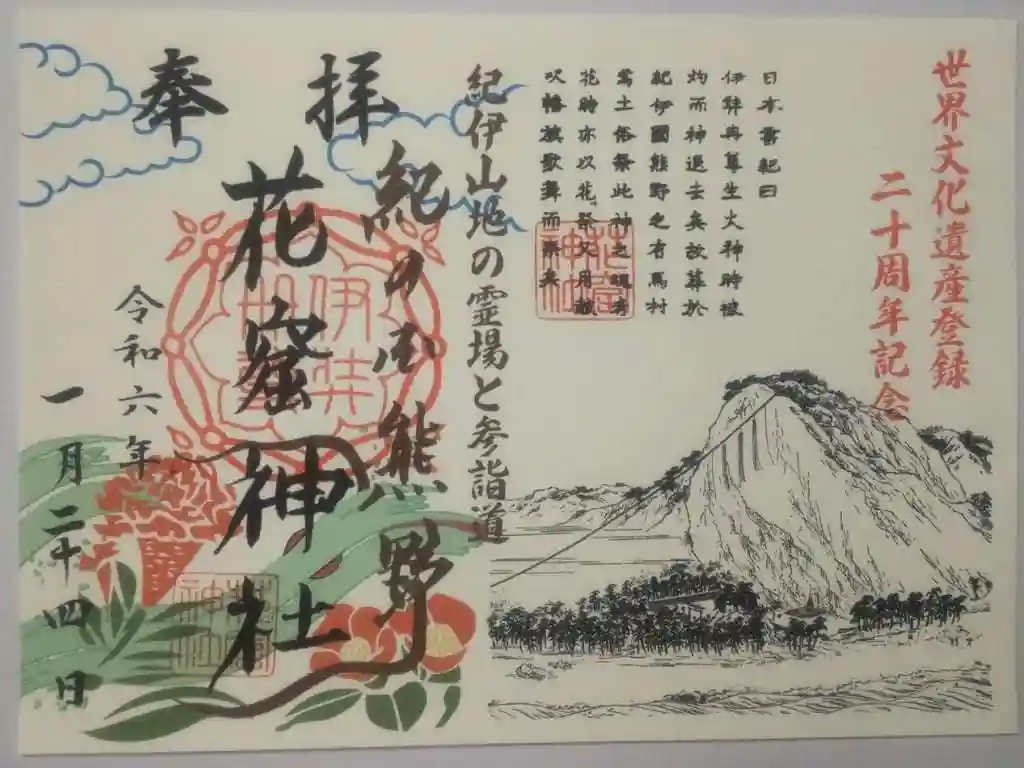 世界文化遺産登録
二十周年記念
日本書紀曰
伊弉冉尊生火神時被
灼而神退去矣故葬於
紀伊國熊野之有馬村
焉土俗祭此神之魂者
花時亦以花祭又用鼓
吹幡旗歌舞而祭矣
花窟神社
紀伊山地の霊場と参詣道
奉拝
紀の国熊野
花窟神社
花窟神社
令和六年
一月二十四日